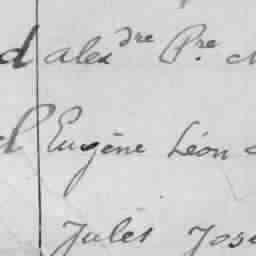 d alexdre Pre
Eugène Léon
Jules Jose